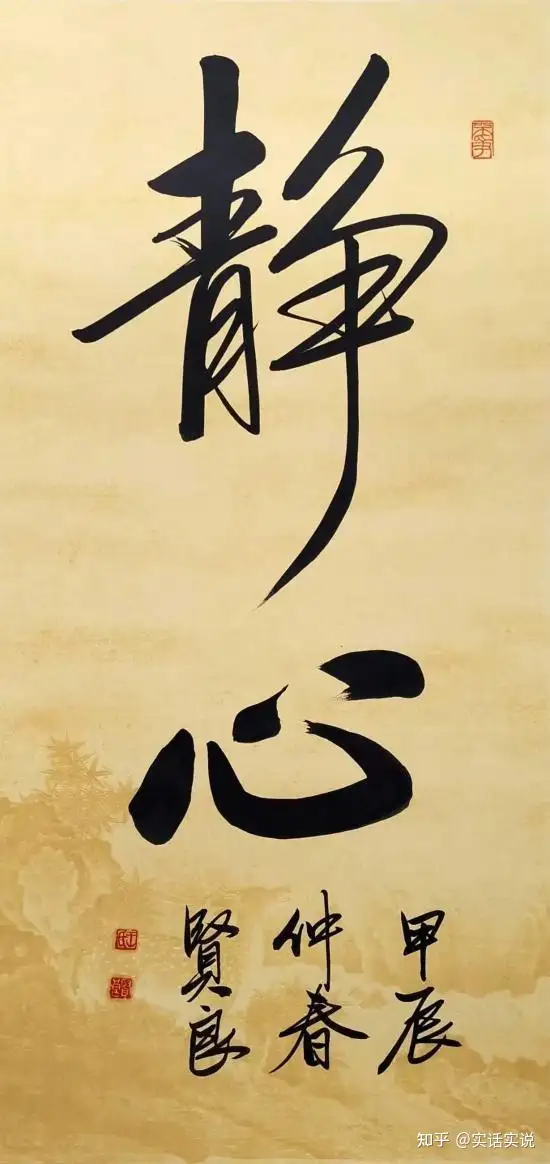 静心
甲辰
仲春
賢良
知乎 @实话实说